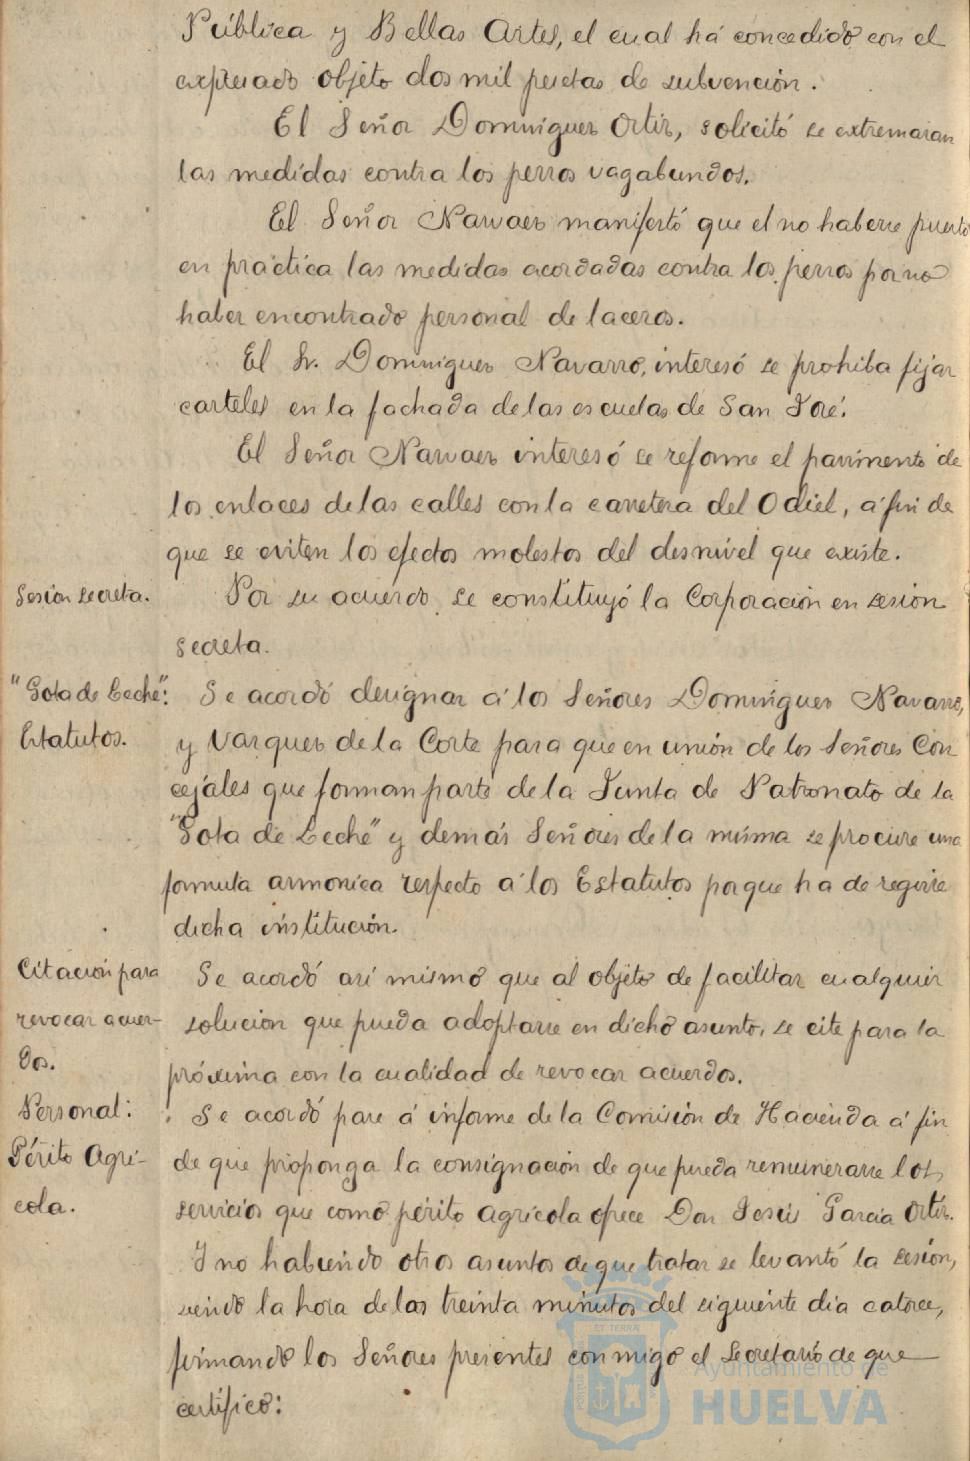 Pública y Bellas Artes, el cual há concedido con el
expresado objeto dos mil pesetas de subvención.
El Señor Domínguez Ortiz, solicitó se extremaran
las medidas contra los perros vagabundos.
El Señor Narvaez manifestó que el no haberse puesto
en práctica las medidas acordadas contra los perros por no
haber encontrado personal de laceros.
El Sr. Domínguez Navarro, interesó se prohiba fijar
carteles en la fachada de las escuelas de San José.
El Señor Narvaez interesó se reforme el pavimento de
los enlaces de las calles con la carretera del Odiel, á fin de
que se eviten los efectos molestos del desnivel que existe.
Sesión secreta.
Por su acuerdo se constituyó la Corporación en sesión
secreta.
"Gota de Leche":
Estatutos.
Se acordó designar á los Señores Domínguez Navarro,
y Vazquez de la Corte para que en unión de los Señores Con
cejales que forman parte de la Junta de Patronato de la
"Gota de Leche" y demás Señores de la misma se procure una
formula armonica respecto á los Estatutos porque ha de regirse
dicha institución.
Citación para
revocar acuer-
dos.
Se acordó asi mismo que al objeto de facilitar cualquier
solucion que pueda adoptarse en dicho asunto, se cite para la
próxima con la cualidad de revocar acuerdos.
Personal:
Périto Agrí-
cola.
Se acordó pase á informe de la Comisión de Hacienda á fin
de que proponga la consignación de que pueda remunerarse los
servicios que como périto agrícola ofrece Don Jesús García Ortiz.
Y no habiendo otros asuntos de que tratar se levantó la sesión,
siendo la hora de las treinta minutos del siguiente dia catorce,
firmando los Señores presentes conmigo el Secretario de que
certifico:
Ayuntamiento de
HUELVA